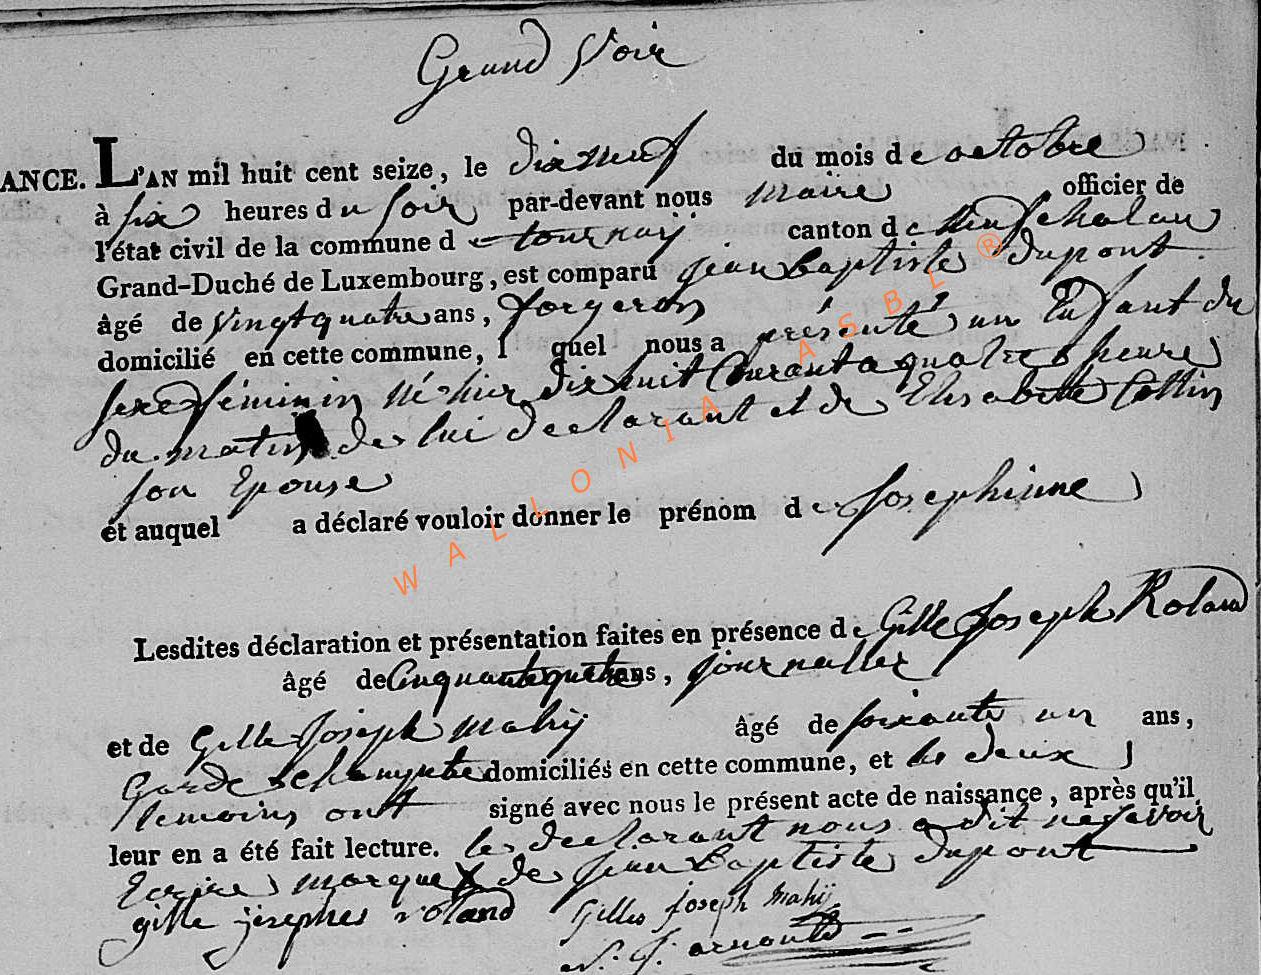 Grand Voir
ANCE. L'AN mil huit cent seize, le dix neuf du mois de octobre
à six heures du soir par-devant nous maire officier de
l'état civil de la commune de tournay canton de Neufchateau
Grand-Duché de Luxembourg, est comparu jean baptiste dupont
âgé de vingt quatre ans, forgeron
domicilié en cette commune, l quel nous a présenté un Enfant du
sexe féminin né hier dix huit Courant a quatre heures
du matin de lui declarant et de Elisabette Collin
son Epouse
et auquel a déclaré vouloir donner le prénom de Josephinne
Lesdites déclaration et présentation faites en présence de Gille Joseph Roland
âgé de Cinquante quatre ans, journallier
et de Gille Joseph mahy âgé de soixante un ans,
Garde champetre domiciliés en cette commune, et les deux
temoins ont signé avec nous le présent acte de naissance, après qu'il
leur en a été fait lecture. le declarant nous a dit ne savoir
Ecrire marque X de jean Baptiste dupont
gille josephes roland Gilles Joseph Mahÿ
arnould
WALLONIA ASBL ®